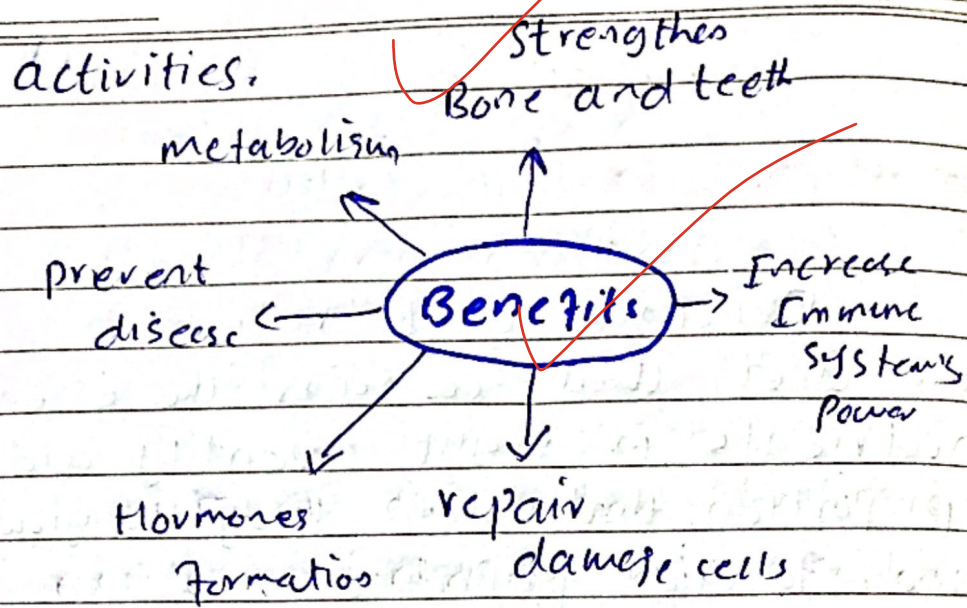 activities.
Strengthes
Bone and teeth
metabolism
prevent
disease
Benefits
Increase
Immune
System's
Power
Hormones
Formation
repair
damage cells